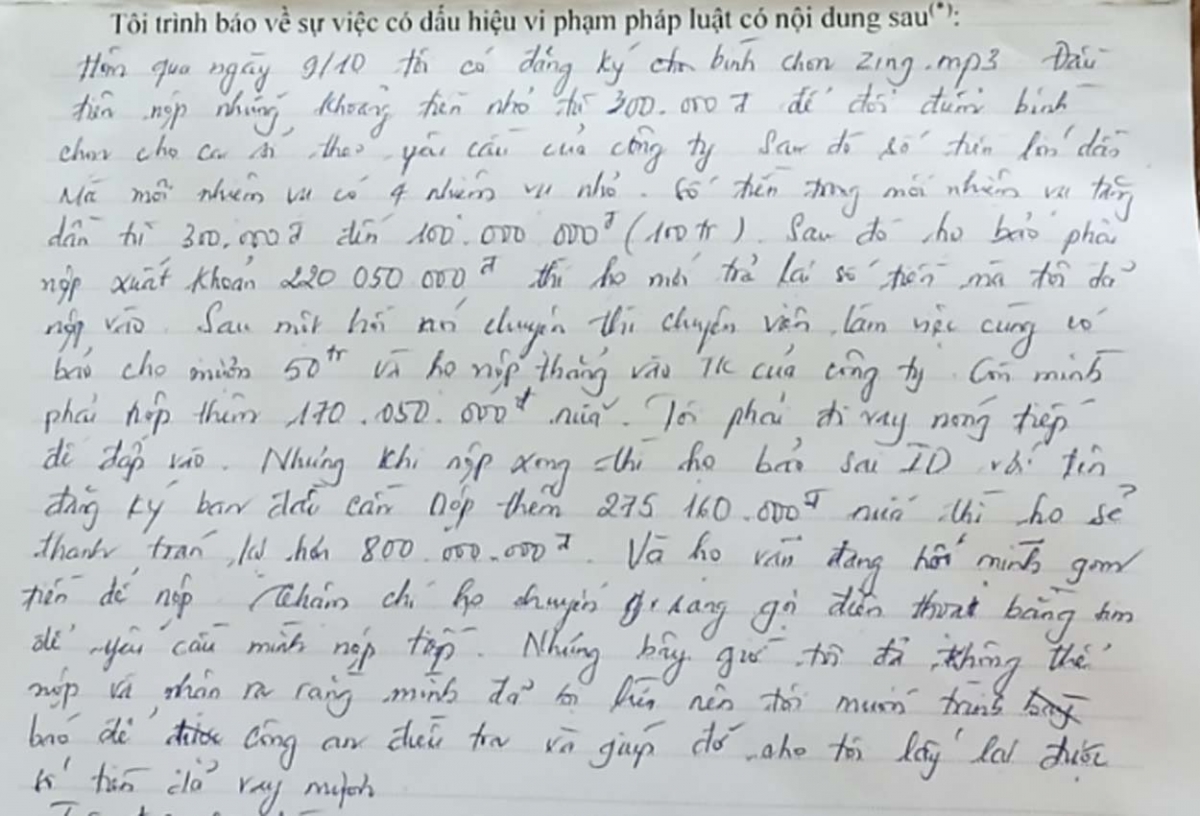 Tôi trình báo về sự việc có dấu hiệu vi phạm pháp luật có nội dung sau(*):
Hôm qua ngày 9/10 tôi có đăng ký bình chọn zing.mp3 Đầu
tiên nộp những khoảng tiền nhỏ từ 300.000đ để đổi điểm bình
chọn cho ca sĩ theo yêu cầu của công ty Sau đó số tiền lớn dần
Mà mỗi nhiệm vụ có 4 nhiệm vụ nhỏ. Số tiền trong mỗi nhiệm vụ tăng
dần từ 300.000đ đến 100.000 000đ (100tr). Sau đó họ bảo phải
nộp xuất khoản 220 050 000đ thì họ mới trả lại số tiền mà tôi đã
nộp vào. Sau một hồi nói chuyện thì chuyên viên làm việc cùng có
bảo cho mượn 50tr và họ nộp thẳng vào TK của công ty. Còn mình
phải nộp thêm 170.050.000đ nữa. Tôi phải đi vay nóng tiếp
để đắp vào. Nhưng khi nộp xong thì họ bảo sai ID với tên
đăng ký ban đầu cần nộp thêm 275 160.000đ nữa thì họ sẽ
thanh toán lại hơn 800.000.000đ. Và họ vẫn đang hối mình gom
tiền để nộp. Thậm chí họ chuyển sang gọi điện thoại bằng sim
để yêu cầu mình nộp tiếp. Nhưng bây giờ tôi đã không thể
nộp và nhận ra rằng mình đã bị lừa nên tôi muốn trình
báo để được công an điều tra và giúp đỡ cho tôi lấy lại được
số tiền đã vay mượn